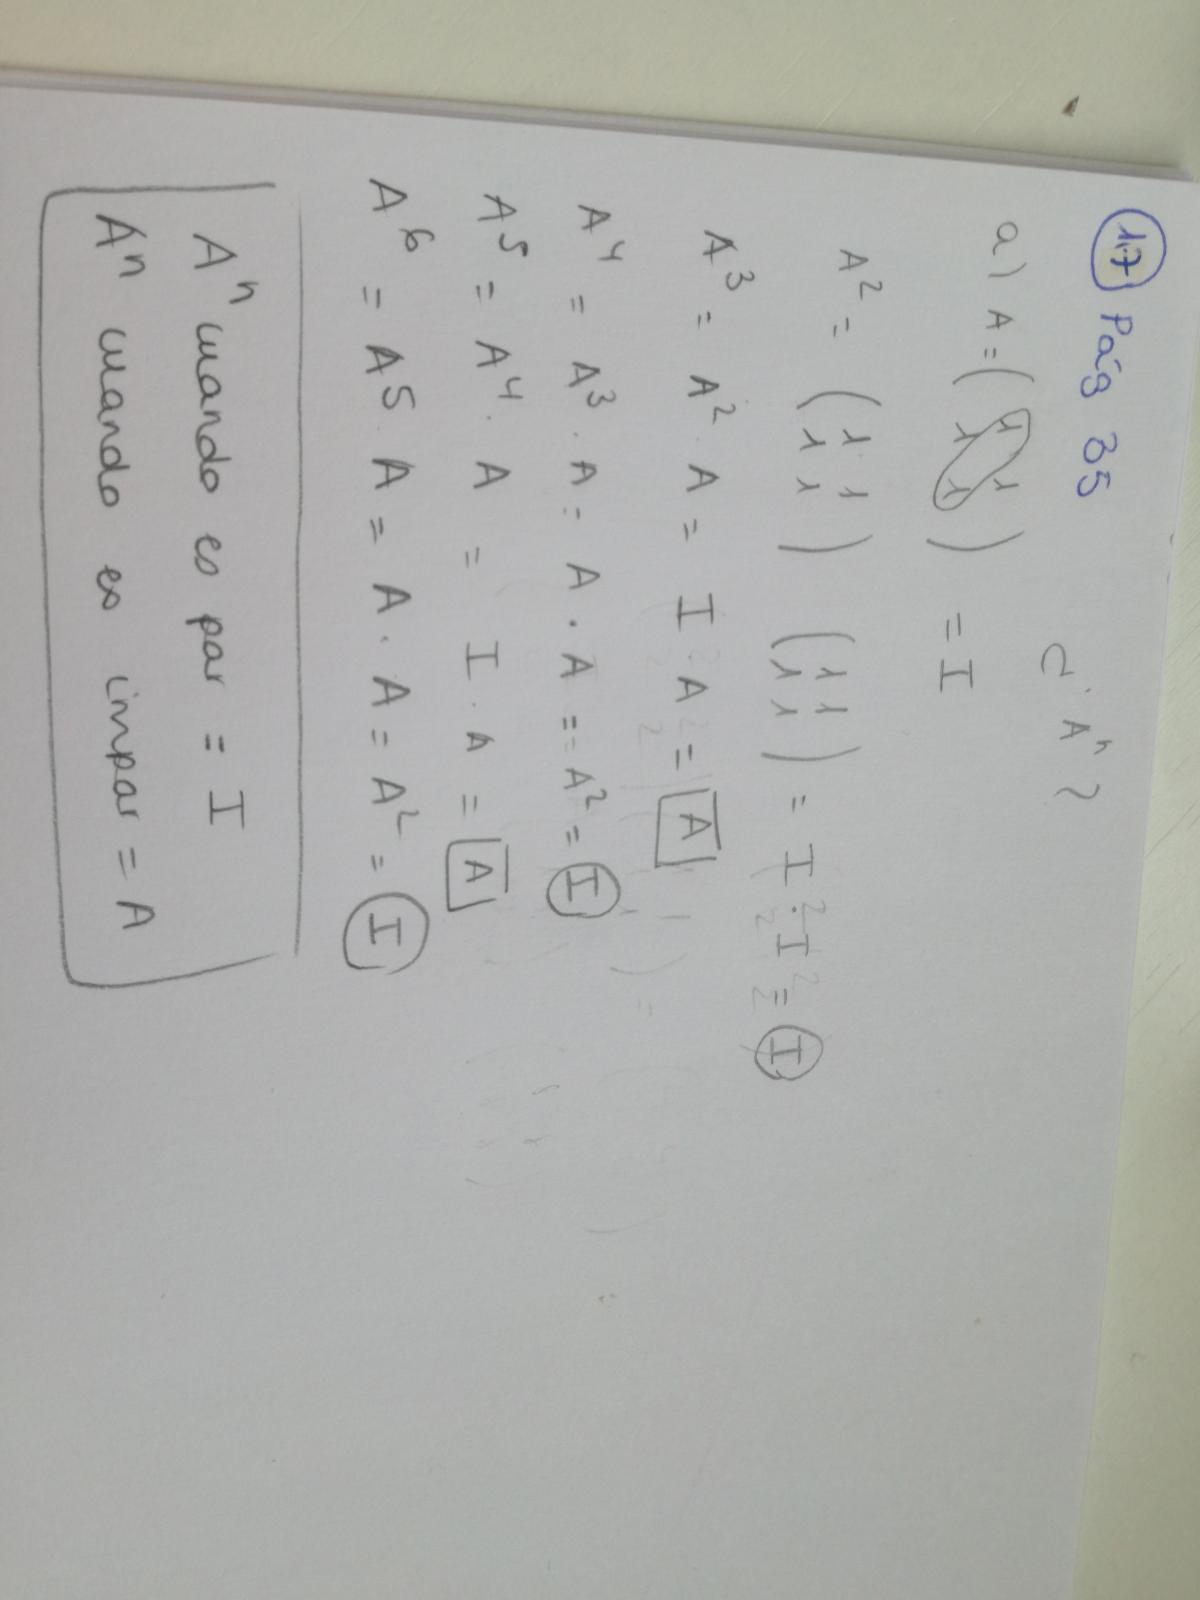 17 Pág 35
¿A^n?
a) A = ( 1 1
1 1 ) = I
A² = ( 1 1
1 1 ) ( 1 1
1 1 ) = I · I = I
A³ = A² · A = I · A = A
A⁴ = A³ · A = A · A = A² = I
A⁵ = A⁴ · A = I · A = A
A⁶ = A⁵ · A = A · A = A² = I
A^n cuando es par = I
A^n cuando es impar = A